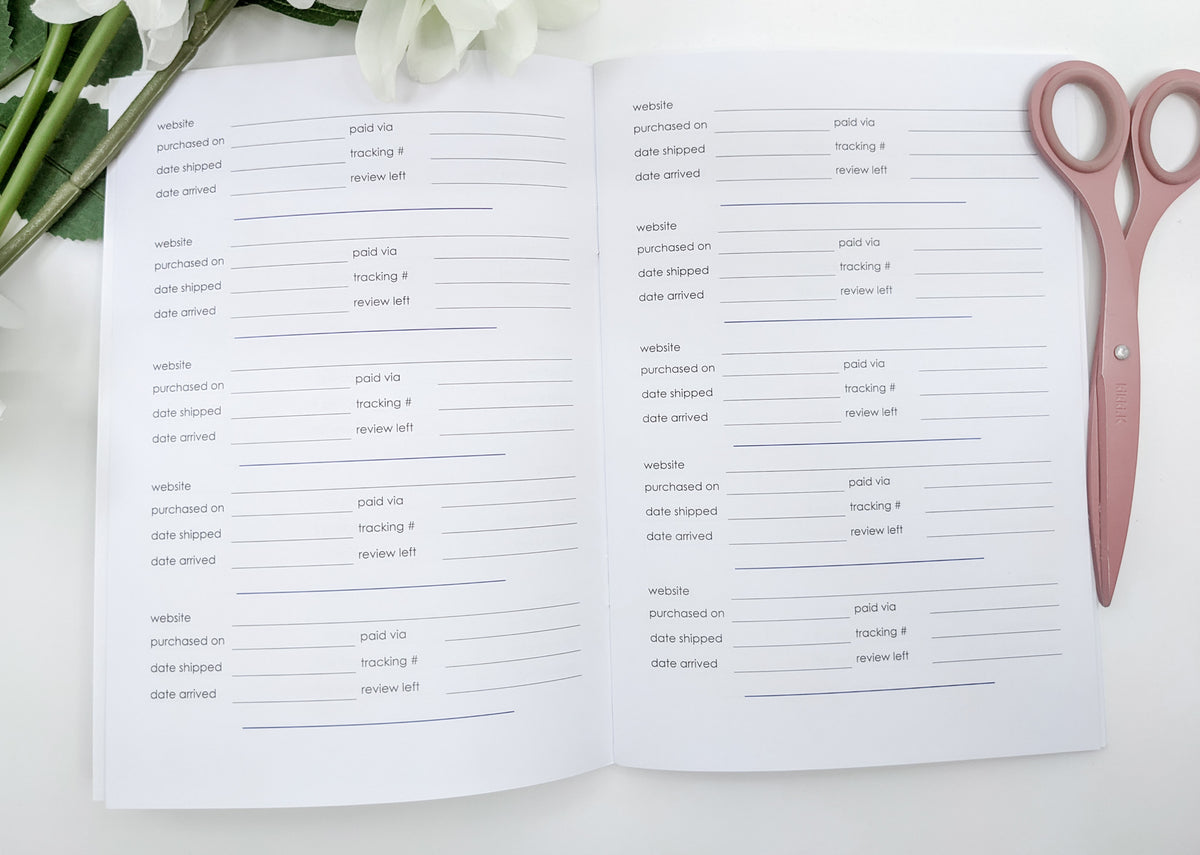 website
purchased on paid via
date shipped tracking #
date arrived review left
website
purchased on paid via
date shipped tracking #
date arrived review left
website
purchased on paid via
date shipped tracking #
date arrived review left
website
purchased on paid via
date shipped tracking #
date arrived review left
website
purchased on paid via
date shipped tracking #
date arrived review left
website
purchased on paid via
date shipped tracking #
date arrived review left
website
purchased on paid via
date shipped tracking #
date arrived review left
website
purchased on paid via
date shipped tracking #
date arrived review left
website
purchased on paid via
date shipped tracking #
date arrived review left
website
purchased on paid via
date shipped tracking #
date arrived review left